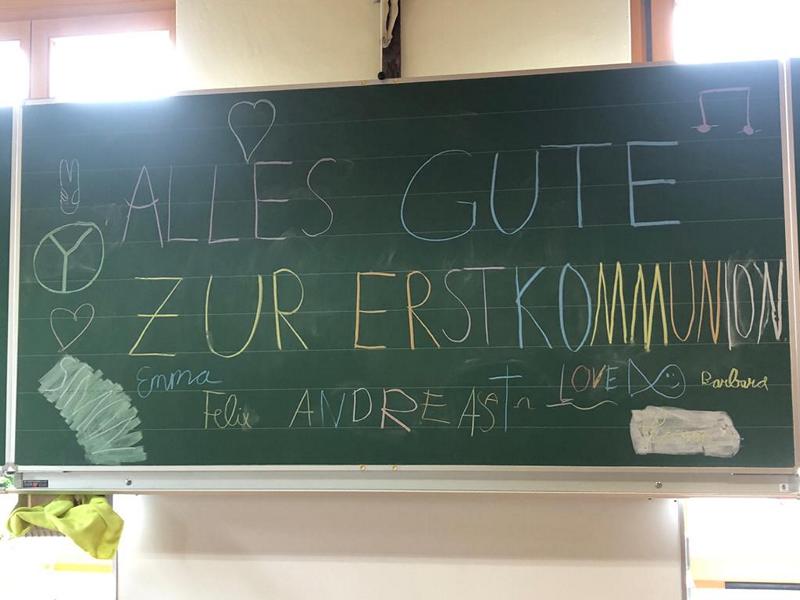 ALLES GUTE
ZUR ERSTKOMMUNION
Emma
Felix ANDREAS LOVE Barbara